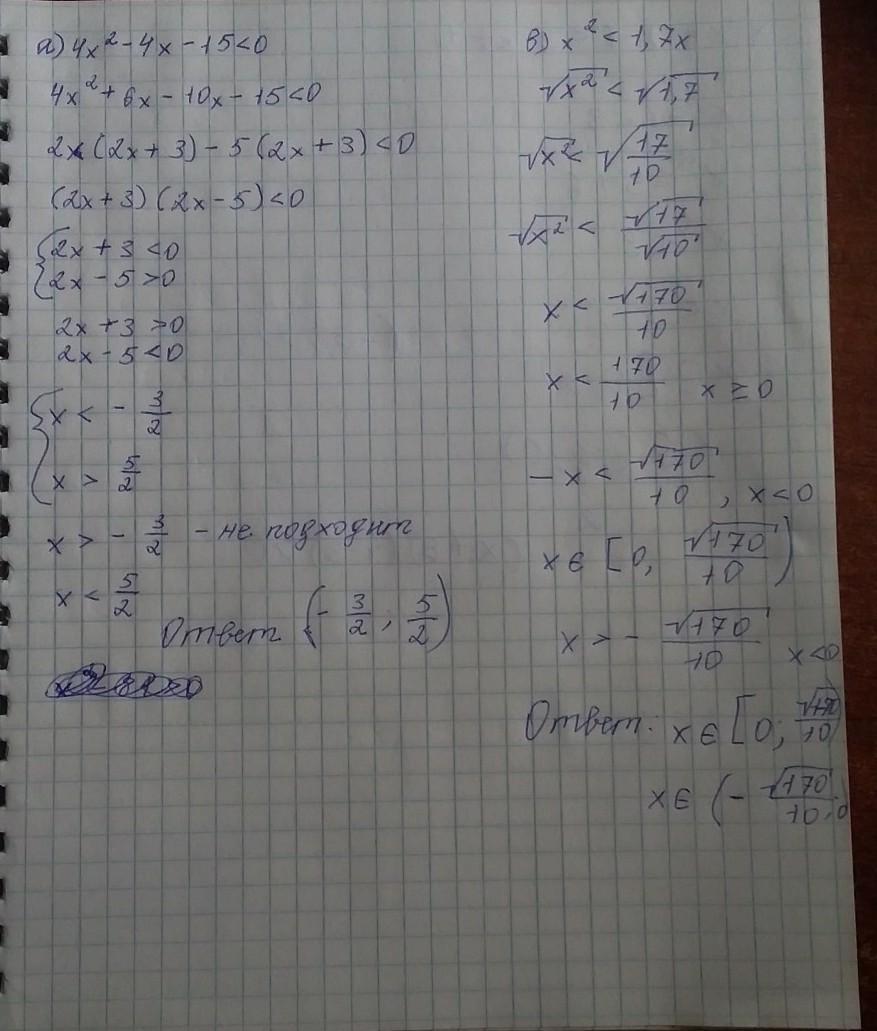 а) 4x² - 4x - 15 < 0
4x² + 6x - 10x - 15 < 0
2x (2x + 3) - 5 (2x + 3) < 0
(2x + 3) (2x - 5) < 0
{2x + 3 < 0
{2x - 5 > 0
2x + 3 > 0
2x - 5 < 0
{x < - 3/2
{x > 5/2
x > - 3/2 - не подходит
x < 5/2
Ответ (- 3/2, 5/2)
в) x² < 1,7x
√x² < √1,7
√x² < √17/10
√x² < √17/√10
x < √170/10
x < 170/10 x ≥ 0
- x < √170/10, x < 0
x ∈ [0, √170/10)
x > - √170/10 x < 0
Ответ: x ∈ [0; √170/10)
x ∈ (- √170/10; 0